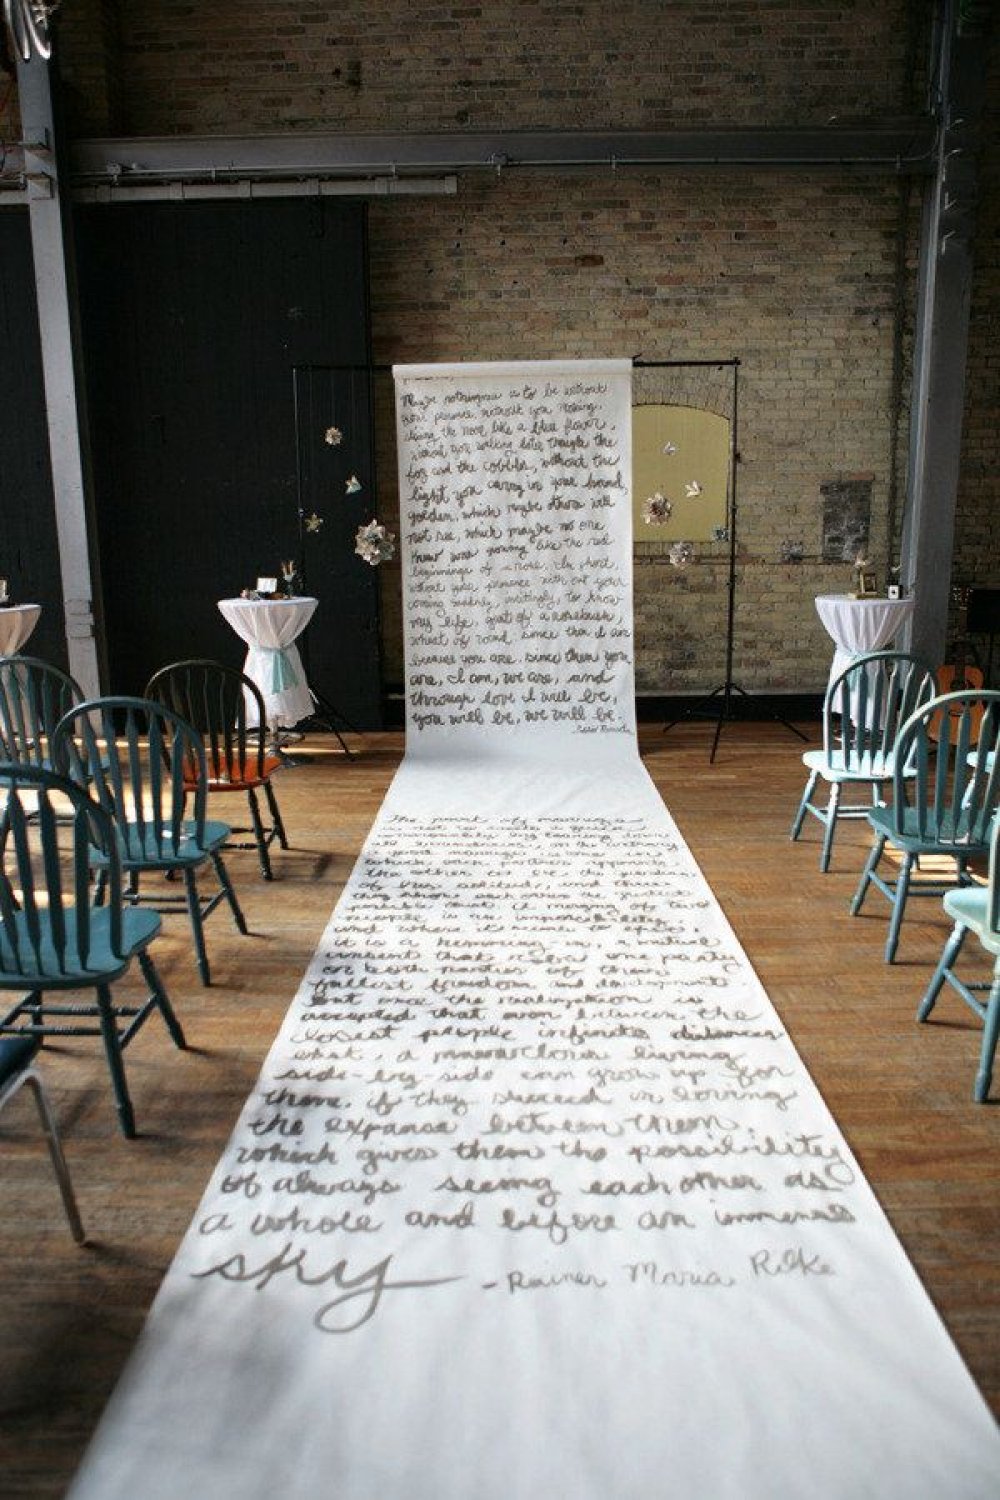 Maybe nothingness is to be without
your presence, without you moving,
slicing the noon like a blue flower,
without you walking later through the
fog and the cobbles, without the
light you carry in your hand,
golden, which maybe others will
not see, which maybe no one
knew was growing like the red
beginnings of a rose. In short,
without your presence without your
coming suddenly, incitingly, to know
my life, gust of a rosebush,
wheat of wind: since then I am
because you are, since then you
are, I am, we are, and
through love I will be,
you will be, we will be.
The point of marriage
is not to create a quick
commonality by tearing down
all boundaries; on the contrary,
a good marriage is one in
which each partner appoints
the other to be the guardian
of his solitude, and thus
they show each other the greatest
possible trust. A merging of two
people is an impossibility,
and where it seems to exist,
it is a hemming-in, a mutual
consent that robs one party
or both parties of their
fullest freedom and development.
But once the realization is
accepted that even between the
closest people infinite distances
exist, a marvelous living
side-by-side can grow up for
them, if they succeed in loving
the expanse between them,
which gives them the possibility
of always seeing each other as
a whole and before an immense
sky - Rainer Maria Rilke